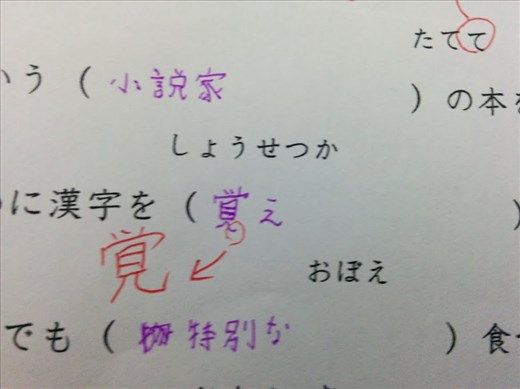 たてて
いう（小説家）の本を
しょうせつか
に漢字を（覚え）
覚
おぼえ
でも（特別な）食